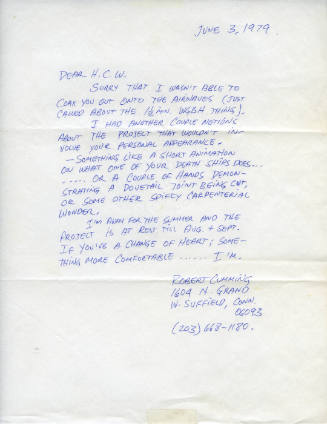 JUNE 3, 1979
DEAR H.C.W.
SORRY THAT I WASN'T ABLE TO
COAX YOU OUT ONTO THE AIRWAVES (JUST
CALLED ABOUT THE 1½ MIN. WGBH THING).
I HAD ANOTHER COUPLE NOTIONS
ABOUT THE PROJECT THAT WOULDN'T IN-
VOLVE YOUR PERSONAL APPEARANCE.
—SOMETHING LIKE A SHORT ANIMATION
ON WHAT ONE OF YOUR DEATH SHIPS DOES...
..... OR A COUPLE OF HANDS DEMON-
STRATING A DOVETAIL JOINT BEING CUT,
OR SOME OTHER SPIFFY CARPENTERIAL
WONDER.
I'M AWAY FOR THE SUMMER AND THE
PROJECT IS AT REST TILL AUG. + SEPT.
IF YOU'VE A CHANGE OF HEART; SOME-
THING MORE COMFORTABLE ...... I'M.
ROBERT CUMMING
1604 N. GRAND
W. SUFFIELD, CONN.
06093
(203) 668-1180.